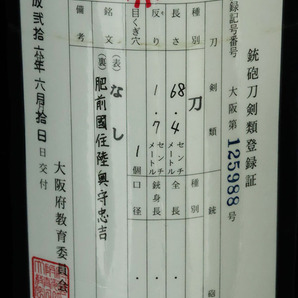 銃砲刀剣類登録証
録記号番号 大阪 第 125988 号
刀剣類 銃砲
種別 刀 種別
長さ 68.4 センチメートル 全長
反り 1.7 センチメートル 銃身長
目くぎ穴 1個 口径
銘文 (表) なし
(裏) 肥前國住陸奥守忠吉
備考
六月 拾日 交付
大阪府教育委員会